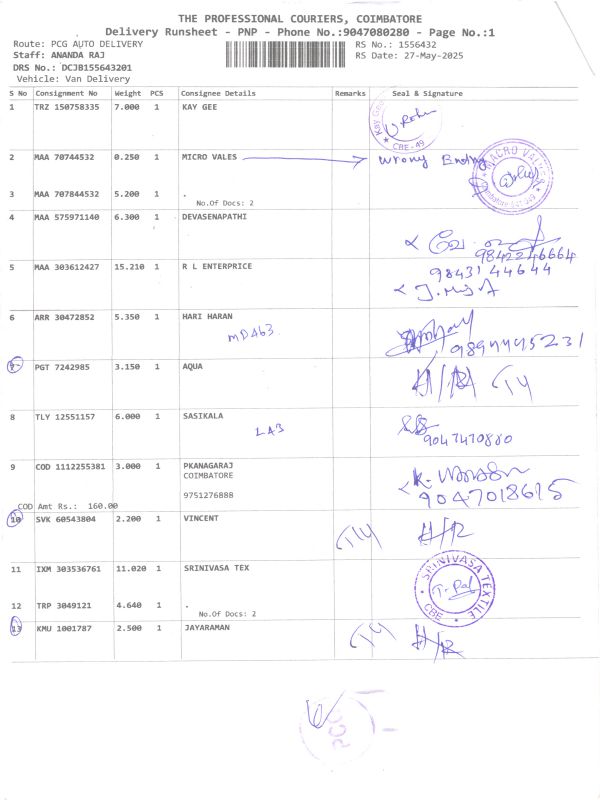 THE PROFESSIONAL COURIERS, COIMBATORE
Delivery Runsheet - PNP - Phone No.:9047080280 - Page No.:1
Route: PCG AUTO DELIVERY RS No.: 1556432
Staff: ANANDA RAJ RS Date: 27-May-2025
DRS No.: DCJB155643201
Vehicle: Van Delivery
S No Consignment No Weight PCS Consignee Details Remarks Seal & Signature
1 TRZ 150758335 7.000 1 KAY GEE
Kay Gee
CBE-49
2 MAA 70744532 0.250 1 MICRO VALES Wrong
MACRO VALVES
3 MAA 707844532 5.200 1 .
No.Of Docs: 2
4 MAA 575971140 6.300 1 DEVASENAPATHI
9842246664
5 MAA 303612427 15.210 1 R L ENTERPRICE 9843144644
6 ARR 30472852 5.350 1 HARI HARAN
MDA63
9894445231
7 PGT 7242985 3.150 1 AQUA
8 TLY 12551157 6.000 1 SASIKALA
LA3
9047470880
9 COD 1112255381 3.000 1 PKANAGARAJ
COIMBATORE
9751276888
9047018615
COD Amt Rs.: 160.00
10 SVK 60543804 2.200 1 VINCENT
11 IXM 303536761 11.020 1 SRINIVASA TEX
SRINIVASA TEXTILE
CBE
12 TRP 3049121 4.640 1 .
No.Of Docs: 2
13 KMU 1001787 2.500 1 JAYARAMAN
PCG